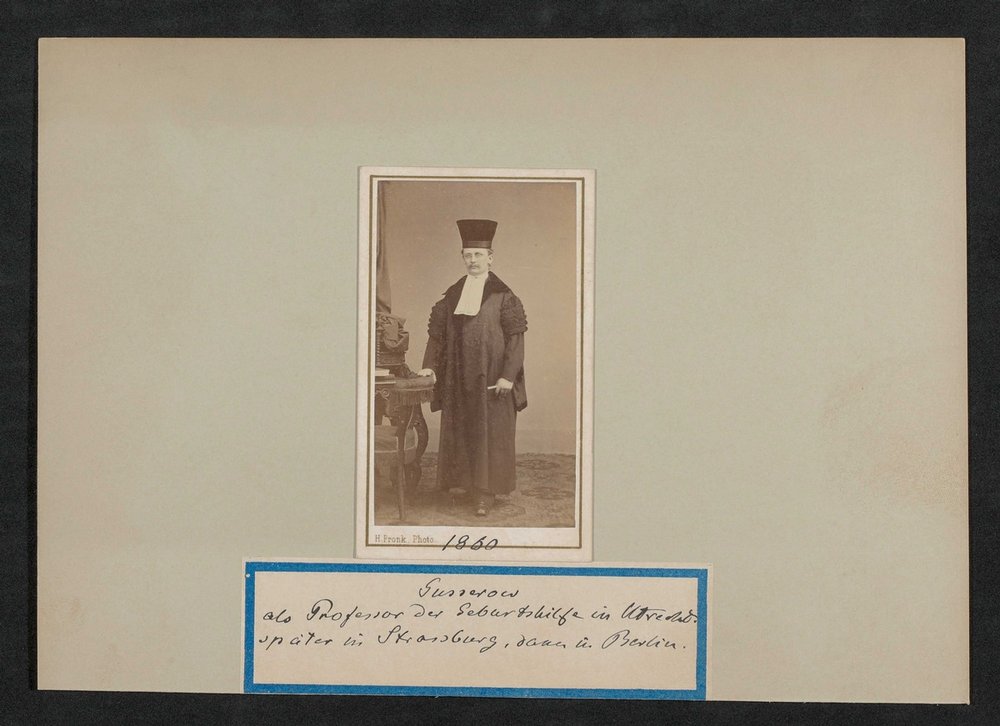 H. Pronk, Photo.
1860
Gusserow
als Professor der Geburtshilfe in Utrecht.
später in Strassburg, dann in Berlin.